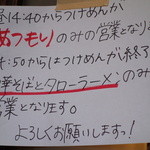 14:40からつけめんが
あつもりのみの営業となります
:50からはつけめんが終了
華そばとタローラーメンのみの
営業となります。
よろしくお願いしますっ!